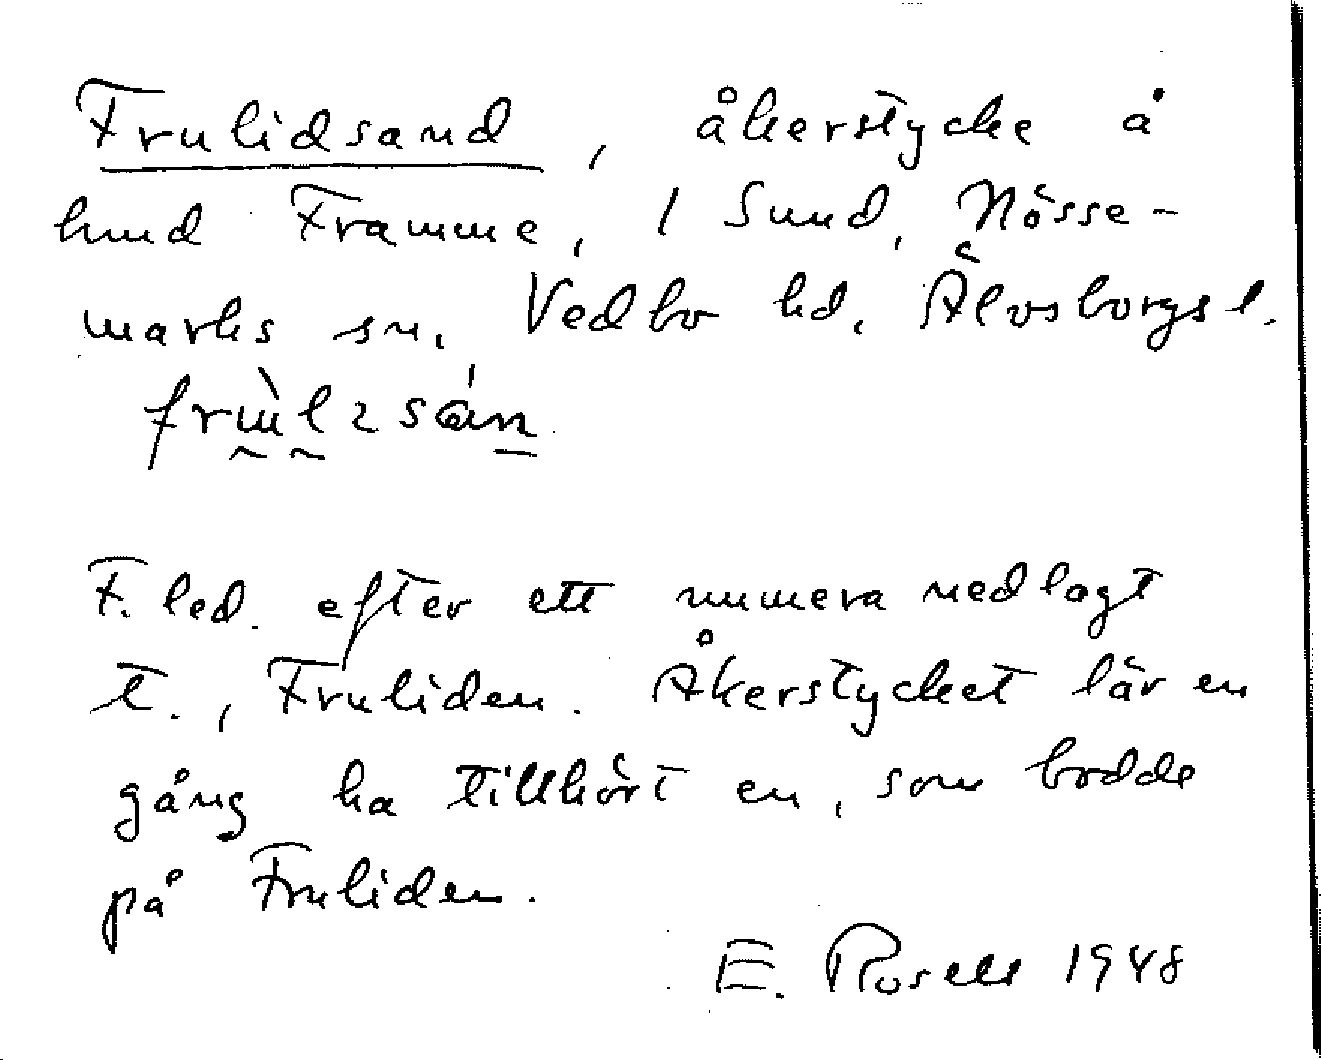 Frulidsand, åkerstycke å
hmd Framme, 1 Sund, Nösse-
marks sn, Vedbo hd, Älvsborgs l.
F. led. efter ett numera nedlagt
t., Fruliden. Åkerstycket lär en
gång ha tillhört en, som bodde
på Fruliden.
E. Rosell 1948